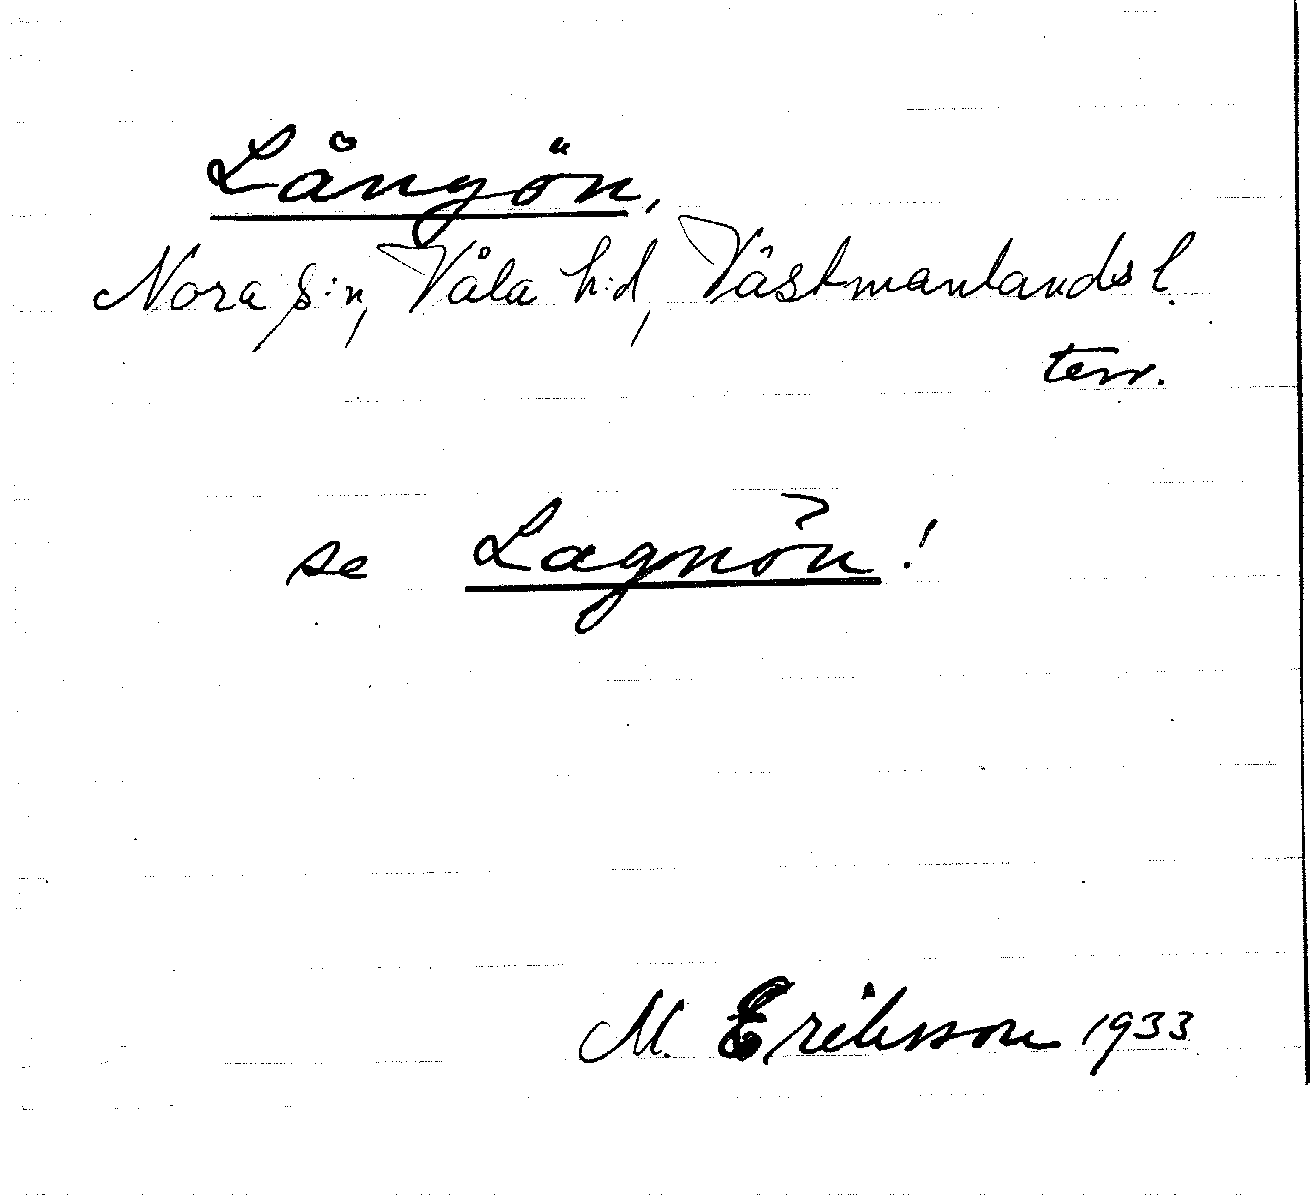 Långön,
Nora s:n, Våla h:d, Västmanlands l.
terr.
se Lagnön!
M. Eriksson 1933